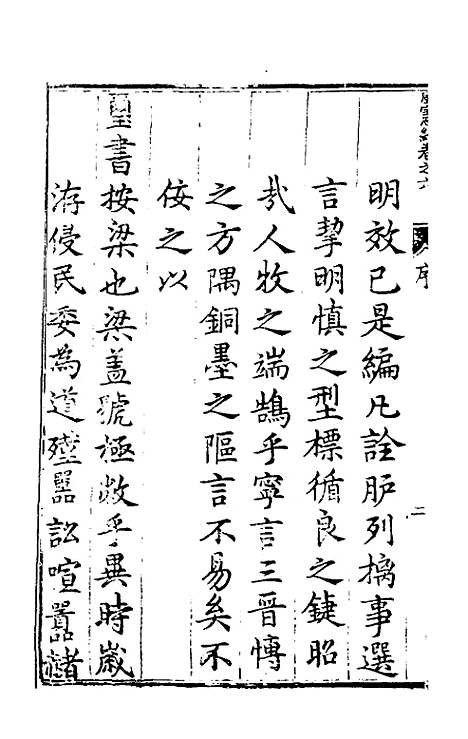 明效已是編凡詮臚列摛事選
言挈明慎之型標循良之鍵昭
哉人牧之端鵠乎寧言三晉愽
之方隅銅墨之隩言不易矣不
佞之以
璽書按梁也梁蓋號極敝乎異時歲
洊侵民委為道殣嚚訟喧囂楮
序
二